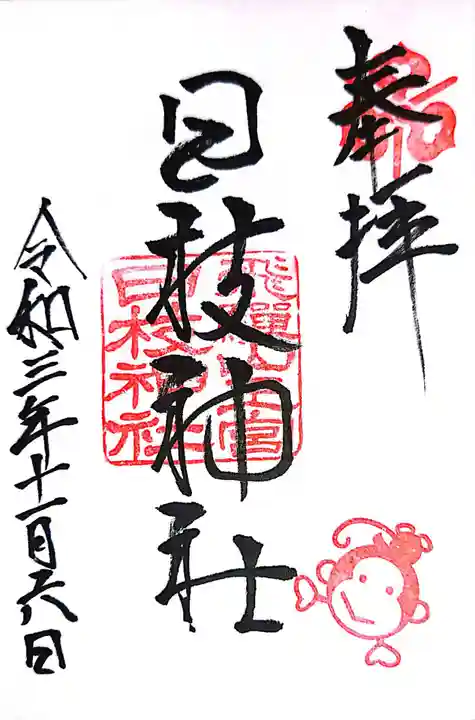 奉拝
日枝神社
飛驒山王宮
日枝神社
令和三年十一月六日